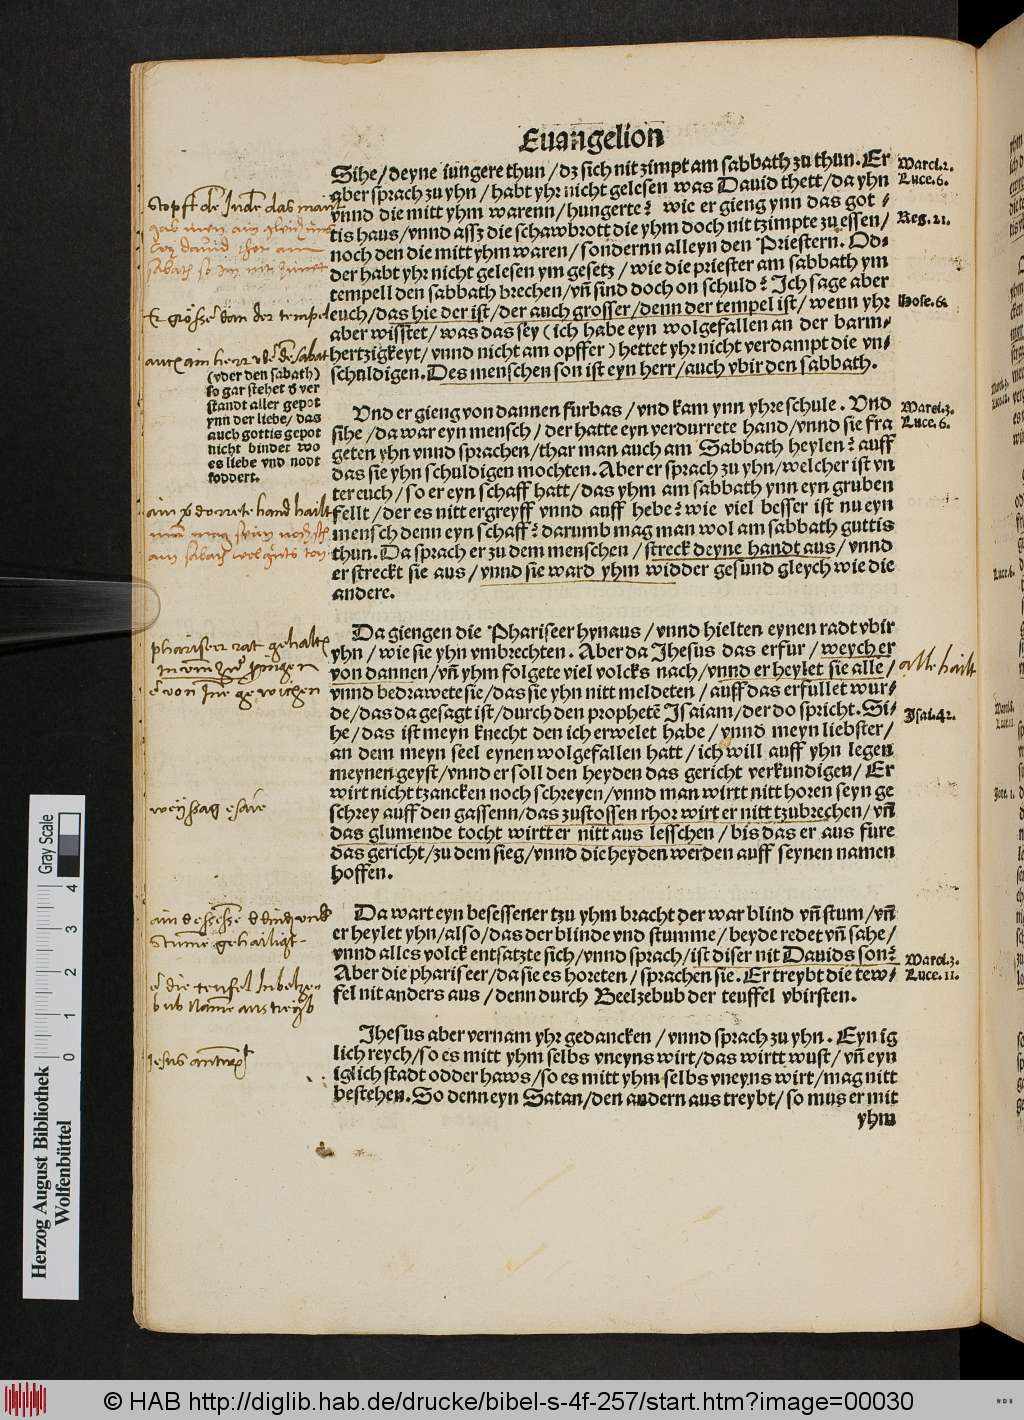 Euangelion
Sihe/deyne iungere thun/dz sich nit zimpt am sabbath zu thun. Er
aber sprach zu yhn/habt yhr nicht gelesen was Dauid thett/da yhn
vnnd die mitt yhm warenn/hungerte? wie er gieng ynn das got⸗
tis haus/vnnd assz die schawbrott die yhm doch nit tzimpte zu essen/
noch den die mitt yhm waren/sondernn alleyn den Priestern. Od⸗
der habt yhr nicht gelesen ym gesetz/wie die priester am sabbath ym
tempell den sabbath brechen/vñ sind doch on schuld? Ich sage aber
euch/das hie der ist/der auch grosser/denn der tempel ist/wenn yhr
aber wisstet/was das sey (ich habe eyn wolgefallen an der barm⸗
hertzigkeyt/vnnd nicht am opffer) hettet yhr nicht verdampt die vn⸗
schuldigen. Des menschen son ist eyn herr/auch vbir den sabbath.
Marci.2.
Luce.6.
Reg.21.
Hose.6.
Er grösser dan der tempel
(vber den sabath)
so gar stehet d ver
standt aller gepot
ynn der liebe/das
auch gottis gepot
nicht bindet wo
es liebe vnd nodt
foddert.
Vnd er gieng von dannen furbas/vnd kam ynn yhre schule. Vnd
sihe/da war eyn mensch/der hatte eyn verdurrete hand/vnnd sie fra
geten yhn vnnd sprachen/thar man auch am Sabbath heylen? auff
das sie yhn schuldigen mochten. Aber er sprach zu yhn/welcher ist vn
ter euch/so er eyn schaff hatt/das yhm am sabbath ynn eyn gruben
fellt/der es nitt ergreyff vnnd auff hebe? wie viel besser ist nu eyn
mensch denn eyn schaff? darumb mag man wol am sabbath guttis
thun. Da sprach er zu dem menschen/streck deyne handt aus/vnnd
er streckt sie aus/vnnd sie ward yhm widder gesund gleych wie die
andere.
Marci.3.
Luce.6.
Da giengen die Phariseer hynaus/vnnd hielten eynen radt vbir
yhn/wie sie yhn vmbrechten. Aber da Jhesus das erfur/weych er
von dannen/vñ yhm folgete viel volcks nach/vnnd er heylet sie alle/
vnnd bedrawete sie/das sie yhn nitt meldeten/auff das erfullet wur⸗
de/das da gesagt ist/durch den prophetē Isaiam/der do spricht. Si⸗
he/das ist meyn knecht den ich erwelet habe/vnnd meyn liebster/
an dem meyn seel eynen wolgefallen hatt/ich will auff yhn legen
meynen geyst/vnnd er soll den heyden das gericht verkundigen/Er
wirt nicht tzancken noch schreyen/vnnd man wirtt nitt horen seyn ge
schrey auff den gassenn/das zustossen rhor wirt er nitt tzubrechen/vñ
das glumende tocht wirtt er nitt aus lesschen/bis das er aus fure
das gericht/zu dem sieg/vnnd die heyden werden auff seynen namen
hoffen.
alle hailt
Isai.42.
weyssag esaie
Da wart eyn besessener tzu yhm bracht der war blind vñ stum/vñ
er heylet yhn/also/das der blinde vnd stumme/beyde redet vñ sahe/
vnnd alles volck entsatzte sich/vnnd sprach/ist diser nit Dauids son?
Aber die phariseer/da sie es horeten/sprachen sie. Er treybt die tew⸗
fel nit anders aus/denn durch Beelzebub der teuffel vbirsten.
Marci.3.
Luce.11.
Jhesus aber vernam yhr gedancken/vnnd sprach zu yhn. Eyn ig
lich reych/so es mitt yhm selbs vneyns wirt/das wirtt wust/vñ eyn
iglich stadt odder haws/so es mitt yhm selbs vneyns wirt/mag nitt
bestehen. So denn eyn Satan/den andern aus treybt/so mus er mit
yhm
Herzog August Bibliothek
Wolfenbüttel
Gray Scale
0 1 2 3 4
© HAB http://diglib.hab.de/drucke/bibel-s-4f-257/start.htm?image=00030